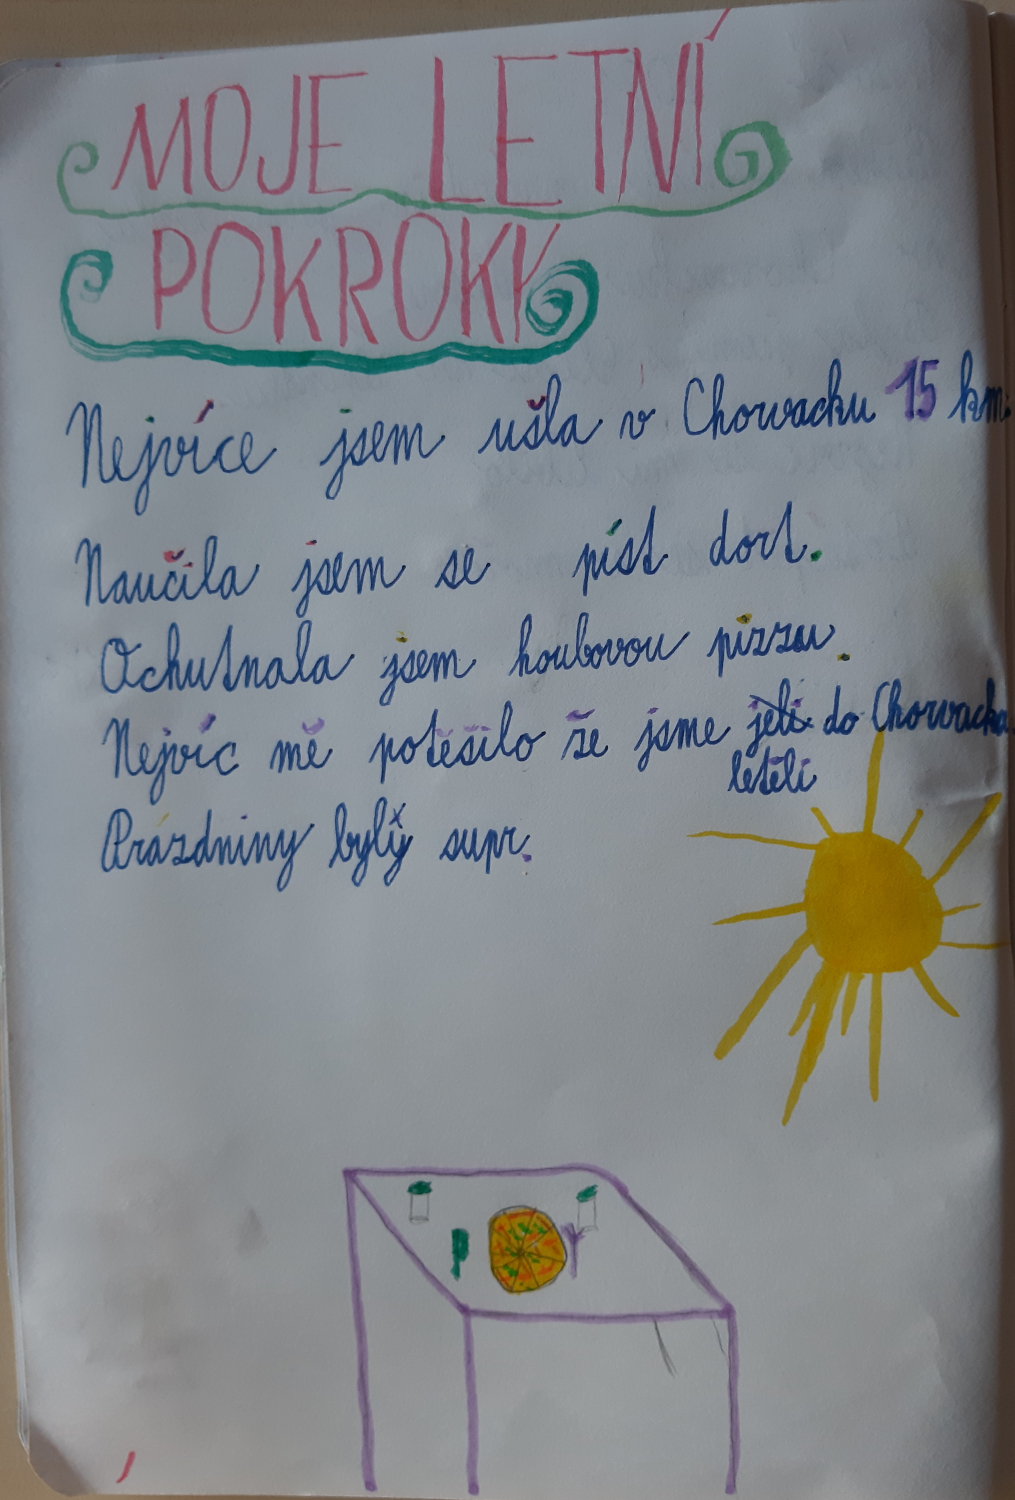 MOJE LETNÍ
POKROKY
Nejvíce jsem ušla v Chorvacku 15 km.
Naučila jsem se píst dort.
Ochutnala jsem houbovou pizzu.
Nejvíc mě potěšilo že jsme jeli do Chorvacka
letěli
Prázdniny byly supr.